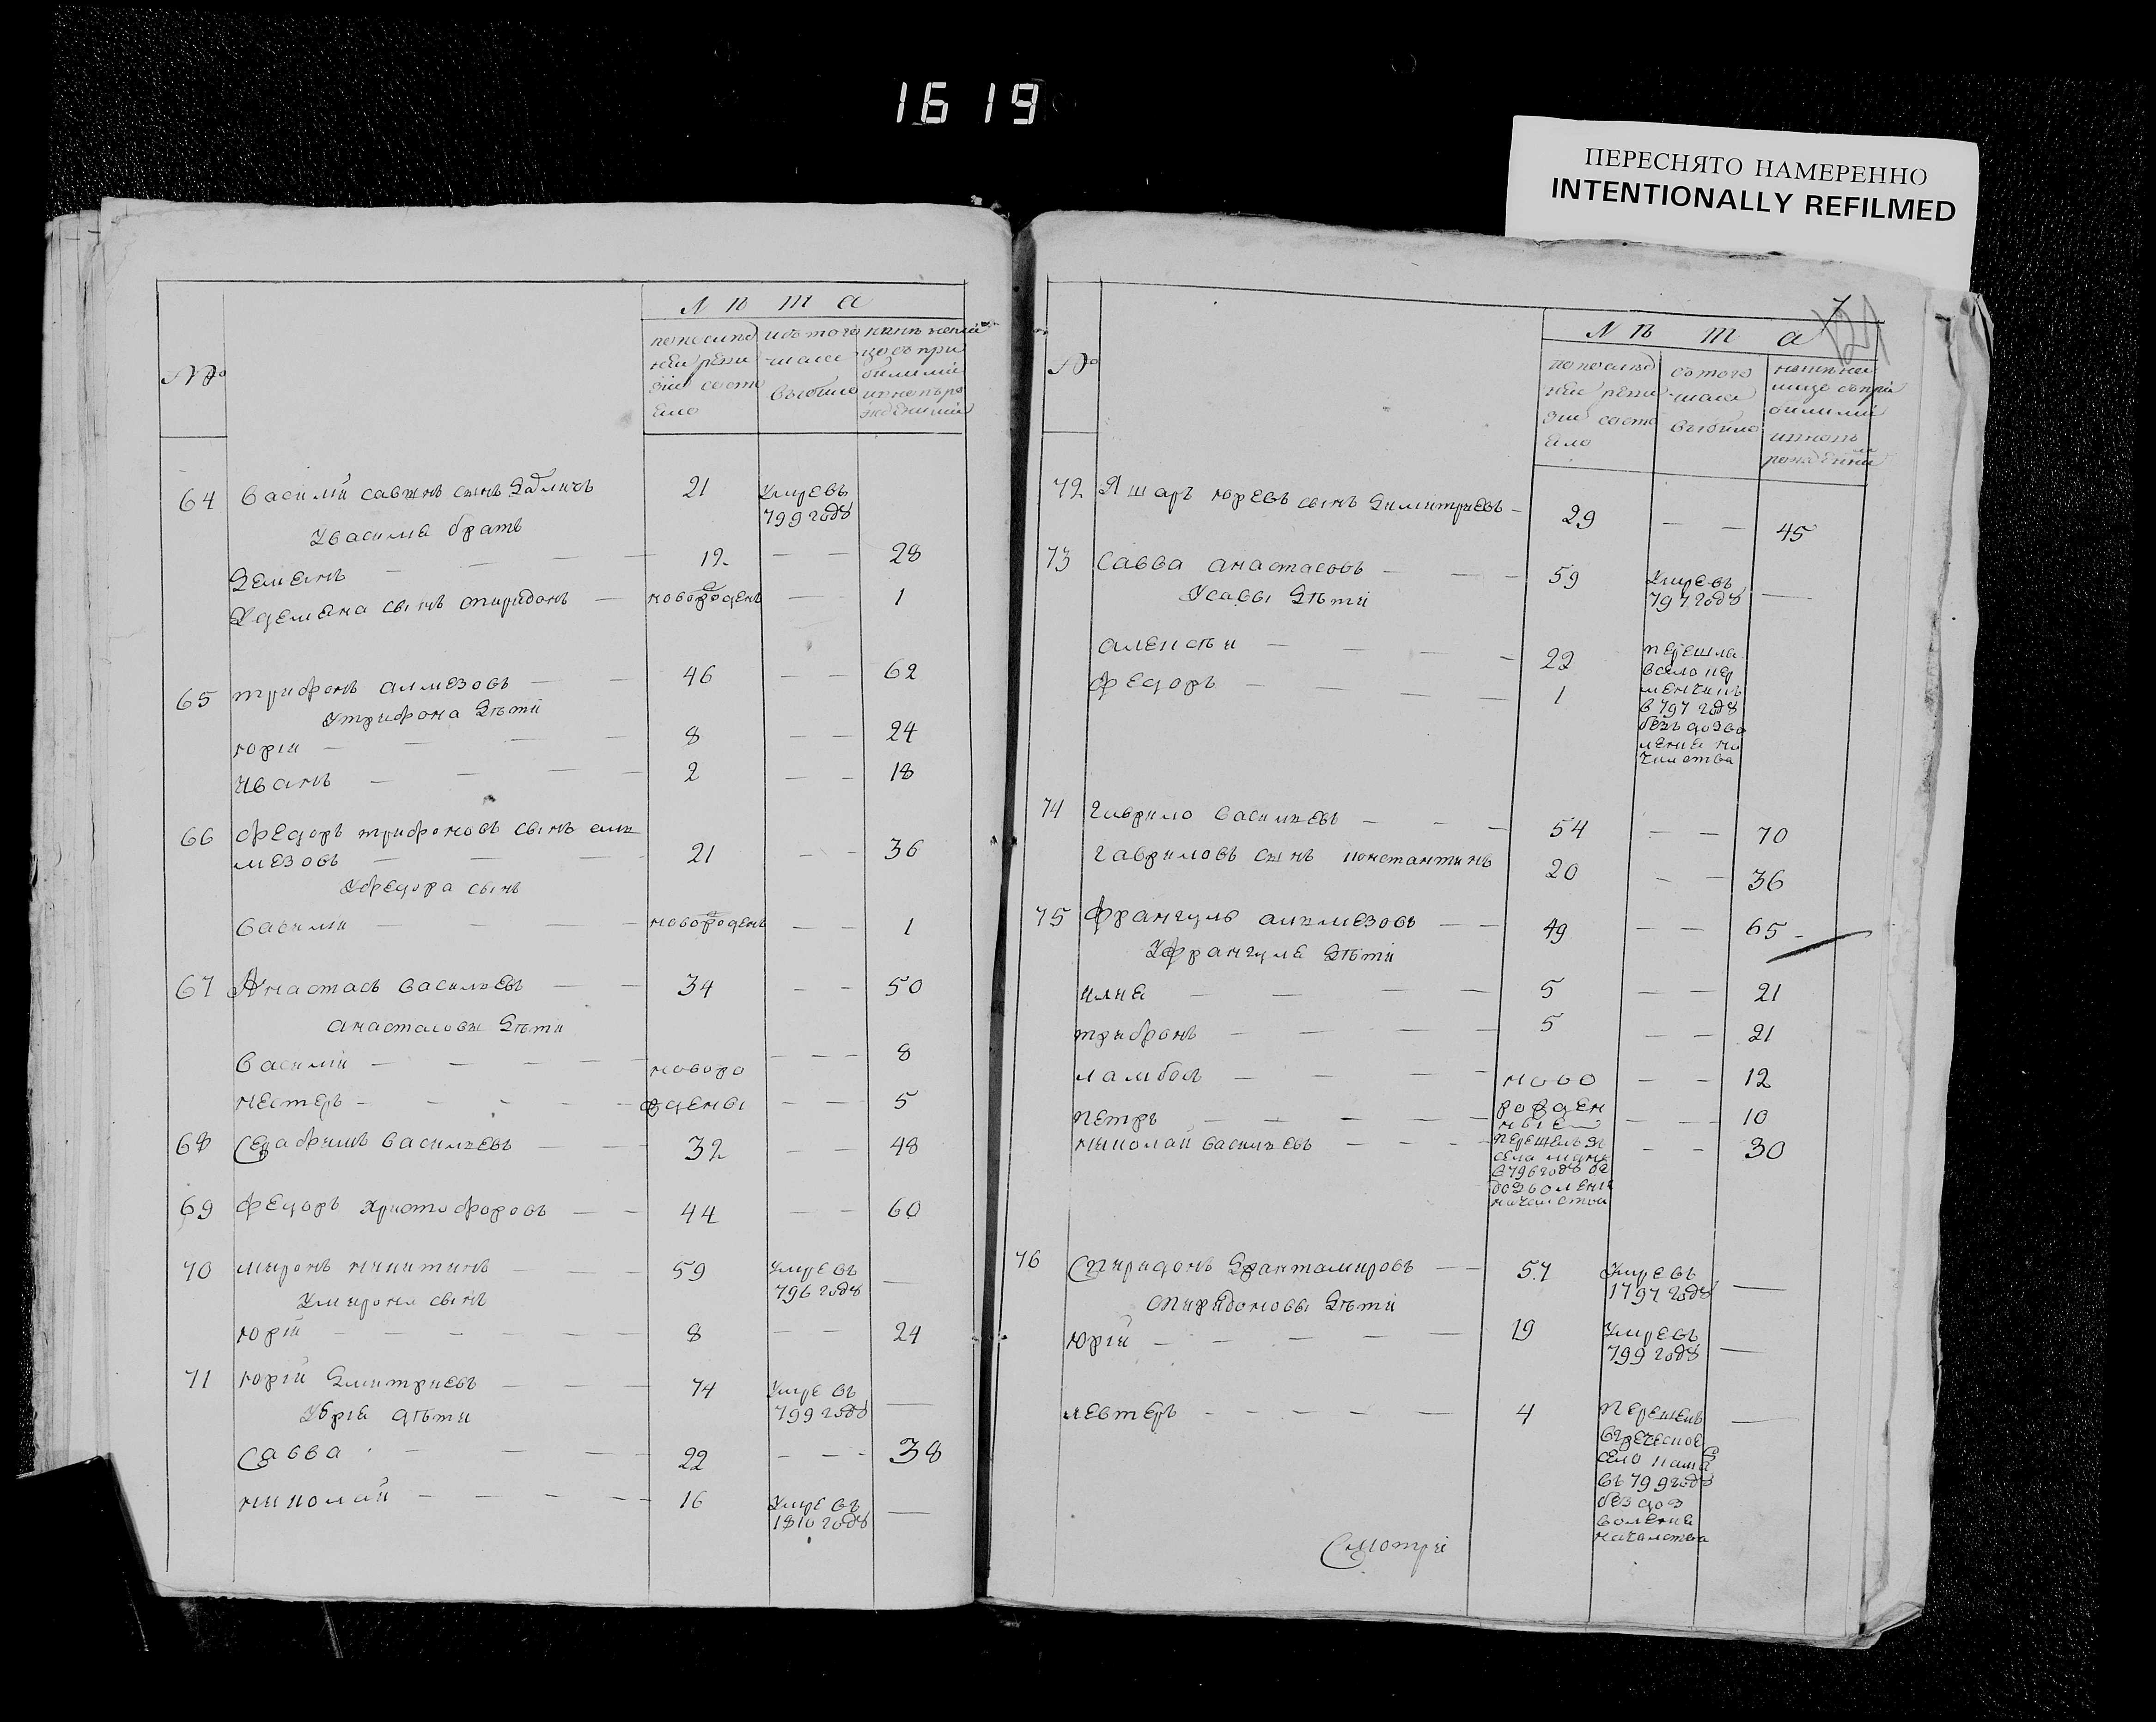 1619
ПЕРЕСНЯТО НАМЕРЕННО
INTENTIONALLY REFILMED
№
Лѣта
по последней ревизии состояло
изъ того числа выбыло
64 василий саввинъ сынъ 21 Умре въ 799 году
У василия братъ
Демианъ — — — 12 — — 28
У демиана сынъ спиридонъ — новорожденъ — 1
65 трифонъ алмезовъ — — 46 — — 62
У трифона дѣти
юрии — — — — 8 — — 24
иванъ — — — — 2 — — 18
66 федоръ трифоновъ сынъ аль
мезовъ — — — 21 — — 36
У федора сынъ
василии — — — — новорожденъ — — 1
67 Анастасъ васильевъ — — 34 — — 50
анастасовы дѣти
василии — — — — новоро — — — 8
нестеръ — — — — — ждены — — 5
68 Серафимъ васильевъ — — 32 — — 48
69 федоръ христофоровъ — — 44 — — 60
70 миронъ никитинъ — — 59 Умре въ 796 году —
У мирона сынъ
юрии — — — — — 8 — — 24
71 юрии Дмитриевъ — — — 74 Умре въ 799 году —
У юрия дѣти
Савва — — — 22 — — — 38
николаи — — — — — 16 Умре въ 1810 году —
124
№
Лѣта
по последней ревизии состояло
съ того числа выбыло
72 Яшаръ юревъ сынъ Димитриевъ — 29 — — 45
73 Савва анастасовъ — — — 59 Умре въ 797 году —
У саввы Дѣти
алексѣи — — — — — 22 перешли
федоръ — — — — — 1 в село кер
менчикъ
в 797 году
безъ дозво
ления на
чалства
74 гаврило васильевъ — — — 54 — — 70
гавриловъ сынъ константинъ 20 — — 36
75 франгулъ альмезовъ — — 49 — — 65 —
У франгуля Дѣти
илия — — — — 5 — — 21
трифонъ — — — — 5 — — 21
ламбоъ — — — — ново — — 12
петръ — — — — рожден — — 10
ные
николаи васильевъ — — — — перешелъ
села
в 796 году бе
дозволения
началства — — 30
76 Спиридонъ — 57 Умре въ 1797 году —
спиридоновы Дѣти
юрии — — — — — 19 Умре въ 799 году —
левтеръ — — — — — 4 перешелъ —
в греческое
село
въ 799 году
без доз
воления
началства
Смотри